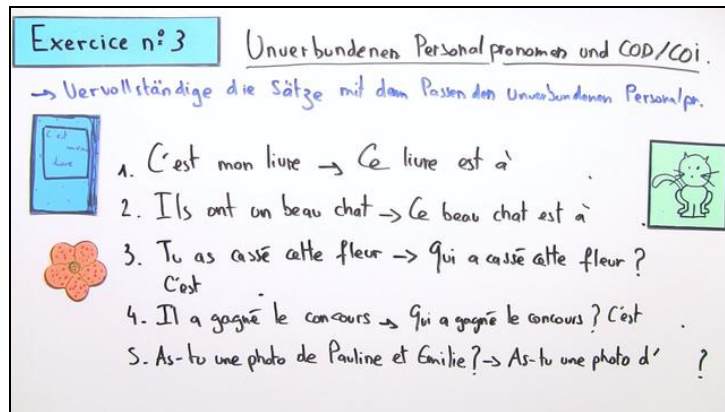 Exercice n° 3
Unverbundenen Personalpronomen und COD/COi.
→ Vervollständige die Sätze mit dem Passenden Unverbundenen Personalpr.
C'est mon livre
1. C'est mon livre → Ce livre est à .
2. Ils ont un beau chat → Ce beau chat est à .
3. Tu as cassé cette fleur → Qui a cassé cette fleur ?
C'est .
4. Il a gagné le concours → Qui a gagné le concours ? C'est .
5. As-tu une photo de Pauline et Emilie ? → As-tu une photo d' ?